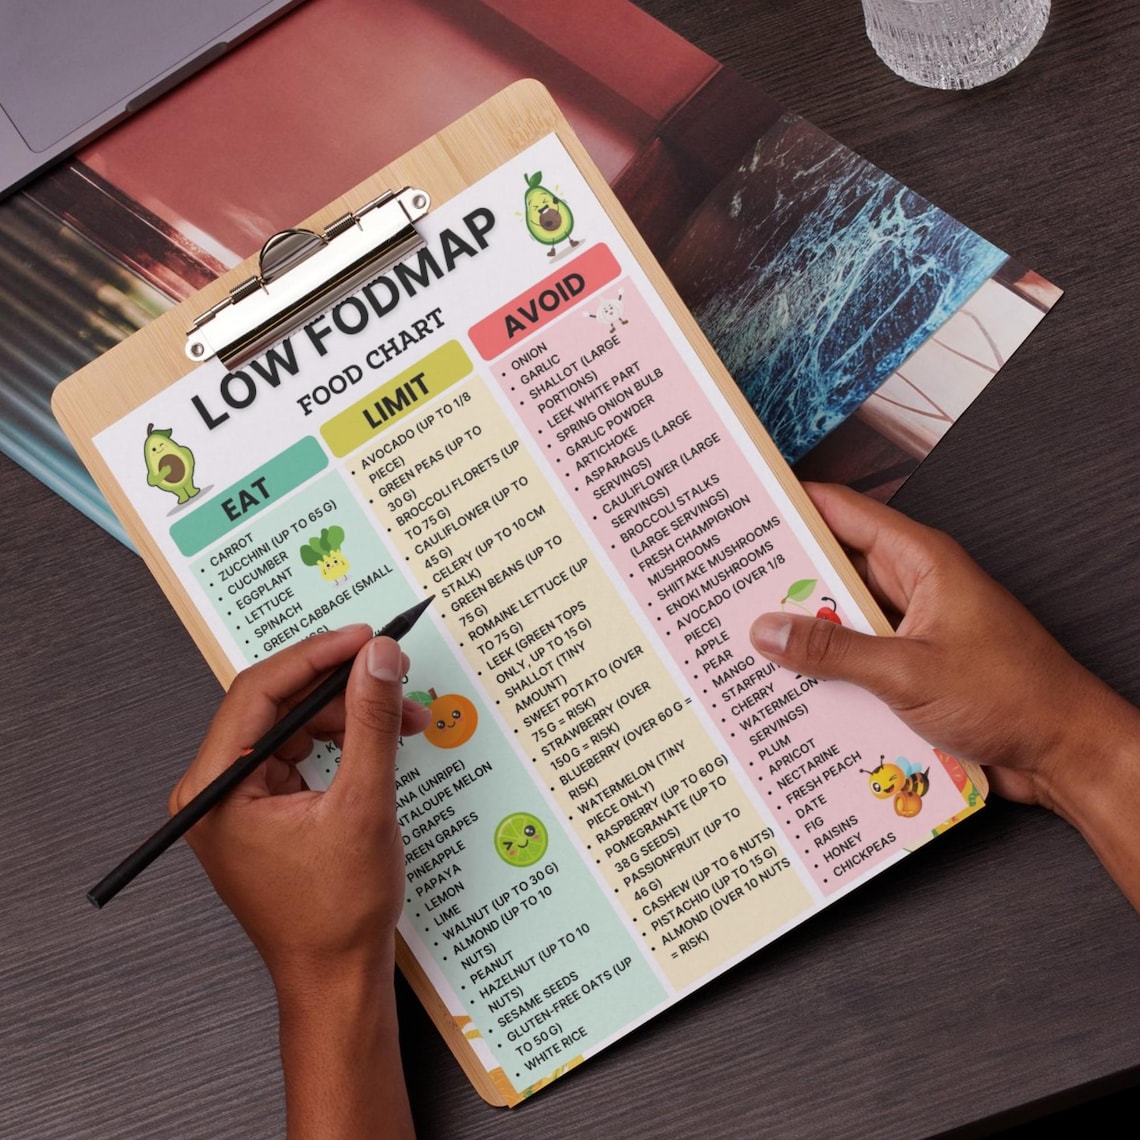 LOW FODMAP
FOOD CHART
EAT
CARROT
ZUCCHINI (UP TO 65 G)
CUCUMBER
EGGPLANT
LETTUCE
SPINACH
GREEN CABBAGE (SMALL
(UNRIPE)
MELON
GRAPES
GREEN GRAPES
PINEAPPLE
PAPAYA
LEMON
LIME
WALNUT (UP TO 30 G)
ALMOND (UP TO 10
NUTS)
PEANUT
HAZELNUT (UP TO 10
NUTS)
SESAME SEEDS
GLUTEN-FREE OATS (UP
TO 50 G)
WHITE RICE
LIMIT
AVOCADO (UP TO 1/8
PIECE)
GREEN PEAS (UP TO
30 G)
BROCCOLI FLORETS (UP
TO 75 G)
CAULIFLOWER (UP TO
45 G)
CELERY (UP TO 10 CM
STALK)
GREEN BEANS (UP TO
75 G)
ROMAINE LETTUCE (UP
TO 75 G)
LEEK (GREEN TOPS
ONLY, UP TO 15 G)
SHALLOT (TINY
AMOUNT)
SWEET POTATO (OVER
75 G = RISK)
STRAWBERRY (OVER
150 G = RISK)
BLUEBERRY (OVER 60 G =
RISK)
WATERMELON (TINY
PIECE ONLY)
RASPBERRY (UP TO 60 G)
POMEGRANATE (UP TO
38 G SEEDS)
PASSIONFRUIT (UP TO
46 G)
CASHEW (UP TO 6 NUTS)
PISTACHIO (UP TO 15 G)
ALMOND (OVER 10 NUTS
= RISK)
AVOID
ONION
GARLIC
SHALLOT (LARGE
PORTIONS)
LEEK WHITE PART
SPRING ONION BULB
GARLIC POWDER
ARTICHOKE
ASPARAGUS (LARGE
SERVINGS)
CAULIFLOWER (LARGE
SERVINGS)
BROCCOLI STALKS
(LARGE SERVINGS)
FRESH CHAMPIGNON
MUSHROOMS
SHIITAKE MUSHROOMS
ENOKI MUSHROOMS
AVOCADO (OVER 1/8
PIECE)
APPLE
PEAR
MANGO
CHERRY
WATERMELON
SERVINGS)
PLUM
APRICOT
NECTARINE
FRESH PEACH
DATE
FIG
RAISINS
HONEY
CHICKPEAS